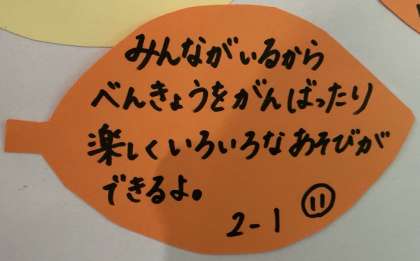 みんながいるから
べんきょうをがんばったり
楽しくいろいろなあそびが
できるよ。
2-1 ⑪